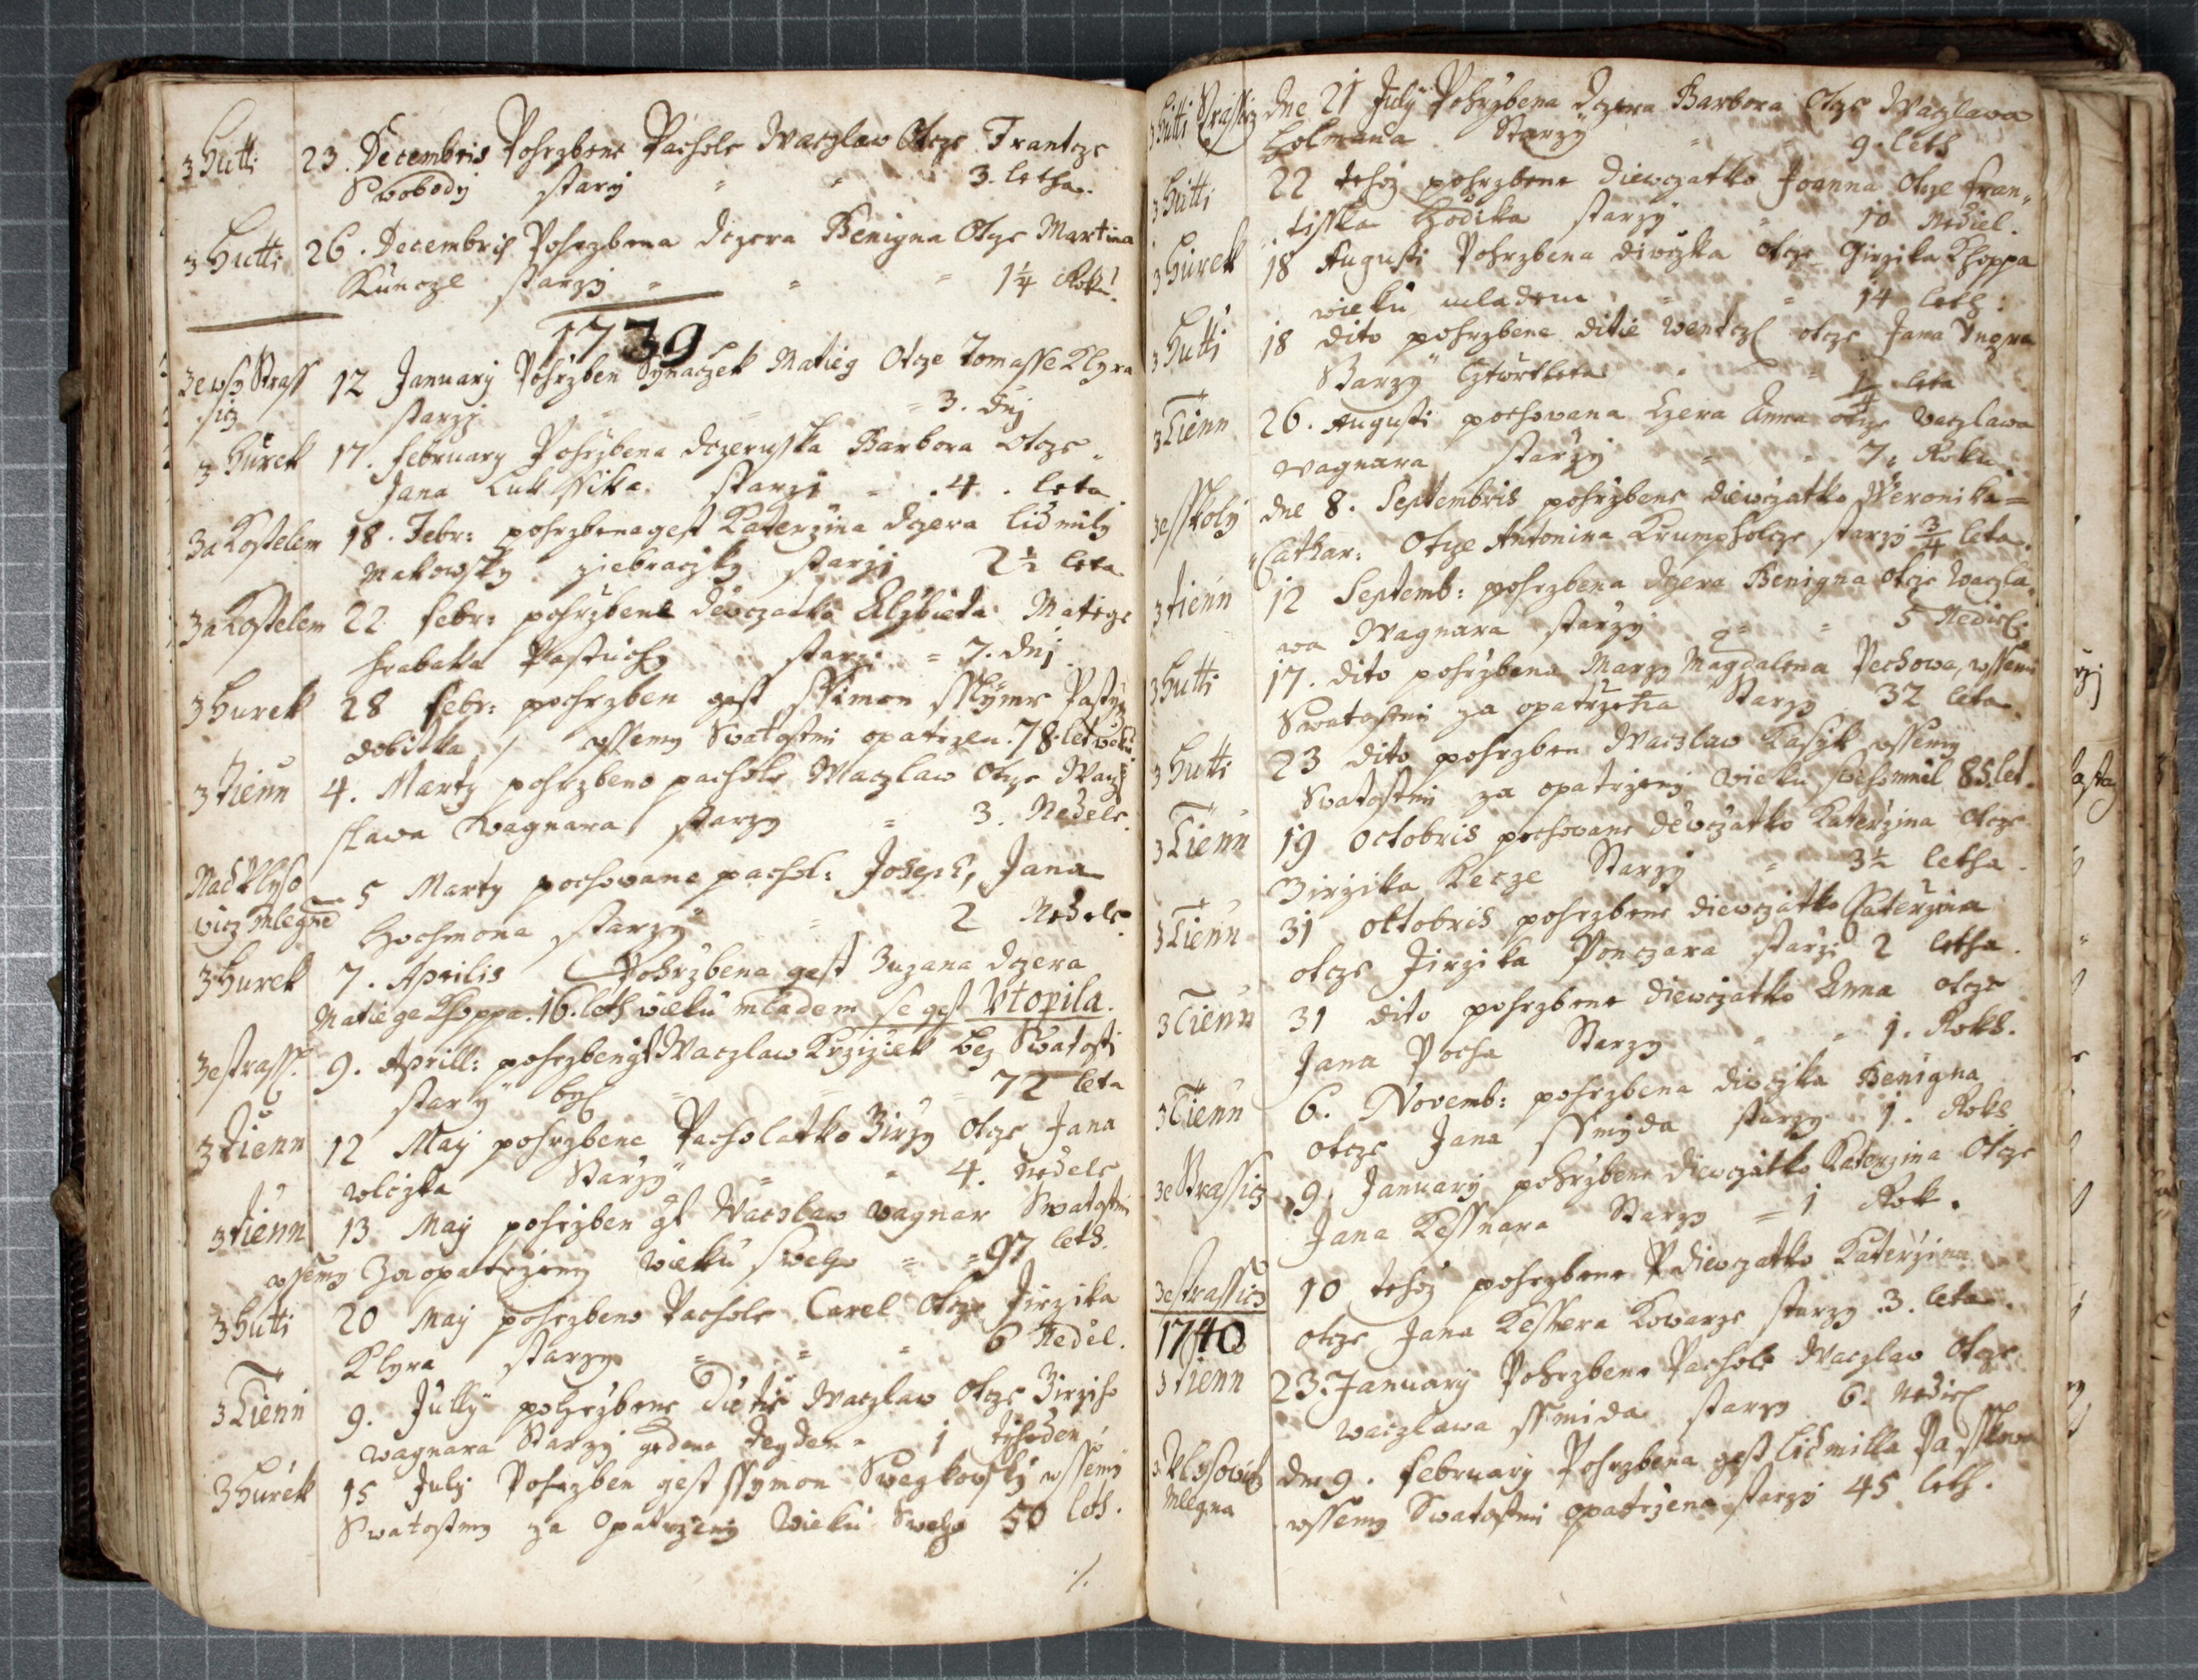 z Hutti 23. Decembris Pohrzbene Pachole Waczlaw Otcze Frantcze
Swobody stary 3. letha.
z Hutti 26. Decembris Pohrzbena dczera Benigna Otcze Martina
Kuncze starzy 1 1/4 Roku.
1739
ze wsy Strass 12 January Pohrzben Synaczek Matieg Otcze Tomasse Klyra
sicz starzy 3. dnj
z Hurek 17. February Pohrzbena dczeruska Barbora Otcze
Jana Lukssika starzy 4. leta
za Kostelem 18. Febr: pohrzbena gest Katerzina dczera lidmily
Makowsky ziebraczky starzy 2 1/2 leta
za Kostelem 22 febr: pohrzbene dewczatko Elzbieta Matege
hrabaka Pastuchy starzy = 7. dnj
z Hurek 28 febr: pochrzben gest Ssimon
dobitka wssemy Swatostmi opatrzen. 78. let
z Tienn 4. Marty pohrzbeno pachole Waczlaw Otcze Wacz
slawa Wagnara starzy = 3. Nedele.
Nad Klyso 5 Marty pochovano pachol: Joseph, Jana
vicz Mlegne Hochmona starzy 2 Nedele.
z Hurek 7. Aprilis Pohrzbena gest Zuzana dczera
Matiege Choppa. 16. leth vieku mladem se gest Vtopila.
ze Strass. 9. Aprill: pohrzben gst Waczlaw Krziziek bez Swatosti
stary byl 72 leta
z Tienn 12 May pohrzbene Pacholatko Jirzy Otcze Jana
wlczka starzy 4. nedele
z Tienn 13 May pohrzben gst Waczlaw Wagnar Swatostmi
wssemy Zaopatrzeny wieku sweho = = 97 leth.
z Hutti 20 May pohrzbeno Pachole Carel Otcze Jirzika
Klyra starzy = = 6 Nedel.
z Tienn 9. Jully pohrzbene Dietie Waczlaw Otcze Jirziho
Wagnara Starzy gedna 1 tehoden
z Hurek 15 July Pohrzben gest Ssymon Swegkovsky wssemy
Swatostmy za Opatrzeny Wieku Sweho 50 let.
./.
z Hutti Strassicz dne 21 July Pohrzbena Dczera Barbora Otcze Waczlawa
Holmana Starzy 9. leth
z Hutti 22 tehoz pohrzbene diewczatko Joanna Otcze Fran„
tisska Hodika starzy 10 Nediel.
z Hurek 18 Augusti Pohrzbena diwczka Otcze Girzika Choppa
wieku mladem 14 leth:
z Hutti 18 dito pohrzbene ditie Wentczl otcze Jana Vngra
Starzy Cztwrtleta 1/4 leta
z Tienn 26. Augusti pochovana Czera Anna otcze Vaczlawa
Wagnara starzy 7. Roku.
ze Sskoly dne 8. Septembris pohrzbene diewczatko Weronika=
Cathar: Otcze Antonina Krumpholcze starzy 3/4 leta.
z Tienn 12 Septemb: pohrzbena dczera Benigna otcze Waczla„
wa Wagnara starzy 5 Nediel.
z Hutti 17. dito pohrzbena Marzy Magdalena Pechowa, wssemi
Swatostmi za opatrzena Starzy 32 leta.
z Hutti 23 dito pohrzben Waczlaw Kasyk wssemy
Swatostmi za opatrzeny wieku 85 let.
z Tienn 19 Octobris pochovane dewczatko Katerzina Otcze
Jirzika Kecze Starzy 3 1/2 letha.
z Tienn 31 Oktobris pohrzbene diewczatko Caterzina
otcze Jirzika Ponczara starzi 2 letha.
z Tienn 31 dito pohrzbene diewczatko Anna otcze
Jana Pocha Starzy 1. Roku.
z Tienn 6. Novemb: pohrzbena diwczka Benigna
otcze Jana Ssmyda starzy 1. Roku
ze Strassicz 9. January pohrzbene diewczatko Katerzina Otcze
Jana Kessnara Starzy = 1 Rok.
ze Strassicz 10 tehoz pohrzbene diewczatko Katerzina
otcze Jana Kessnera Kowarze starzy 3. leta.
1740
z Tienn 23. January Pohrzbene Pachole Waczlaw Otcze
Waczlawa Ssmida starzy 6. Nediel
z Klysovicz dne 9. February Pohrzbena gest Lidmilla
Mlegna wssemy Swatostmi opatrzena starzy 45 leth.